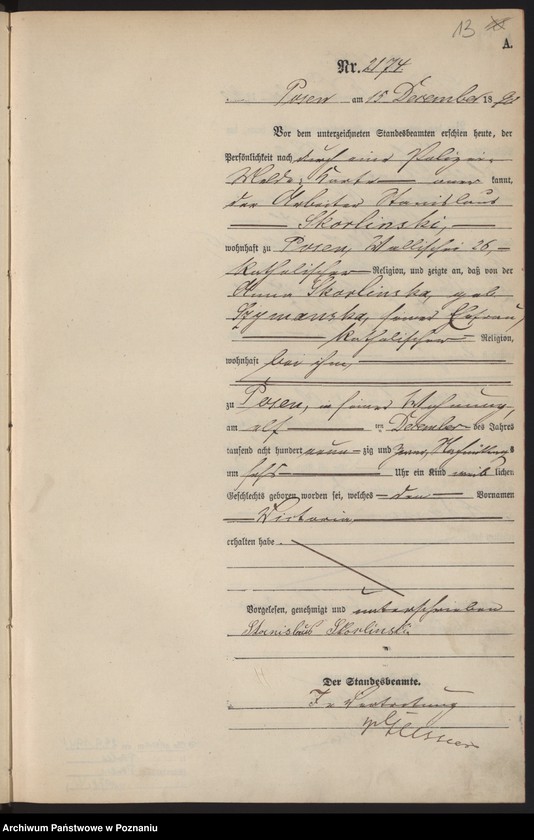 13
A.
Nr. 2174
Posen am 15 Dezember 18
Vor dem unterzeichneten Standesbeamten erschien heute, der
Persönlichkeit nach durch eine Polizei-
Melde-Karte kannt,
der Arbeiter Stanislaus
Skorlinski,
wohnhaft zu Posen, Wallischei 26,
katholischer Religion, und zeigte an, daß von der
Anna Skorlinska, geb.
Szymanska, seiner Ehefrau,
katholischer Religion,
wohnhaft bei ihm,
zu Posen, in seiner Wohnung,
am elf ten Dezember des Jahres
tausend acht hundert neun zig und zwei, Nachmittags
um sechs Uhr ein Kind weib lichen
Geschlechts geboren worden sei, welches den Vornamen
Victoria
erhalten habe.
Vorgelesen, genehmigt und unterschrieben
Stanislaus Skorlinski
Der Standesbeamte.
In Vertretung
Archiwum Państwowe w Poznaniu